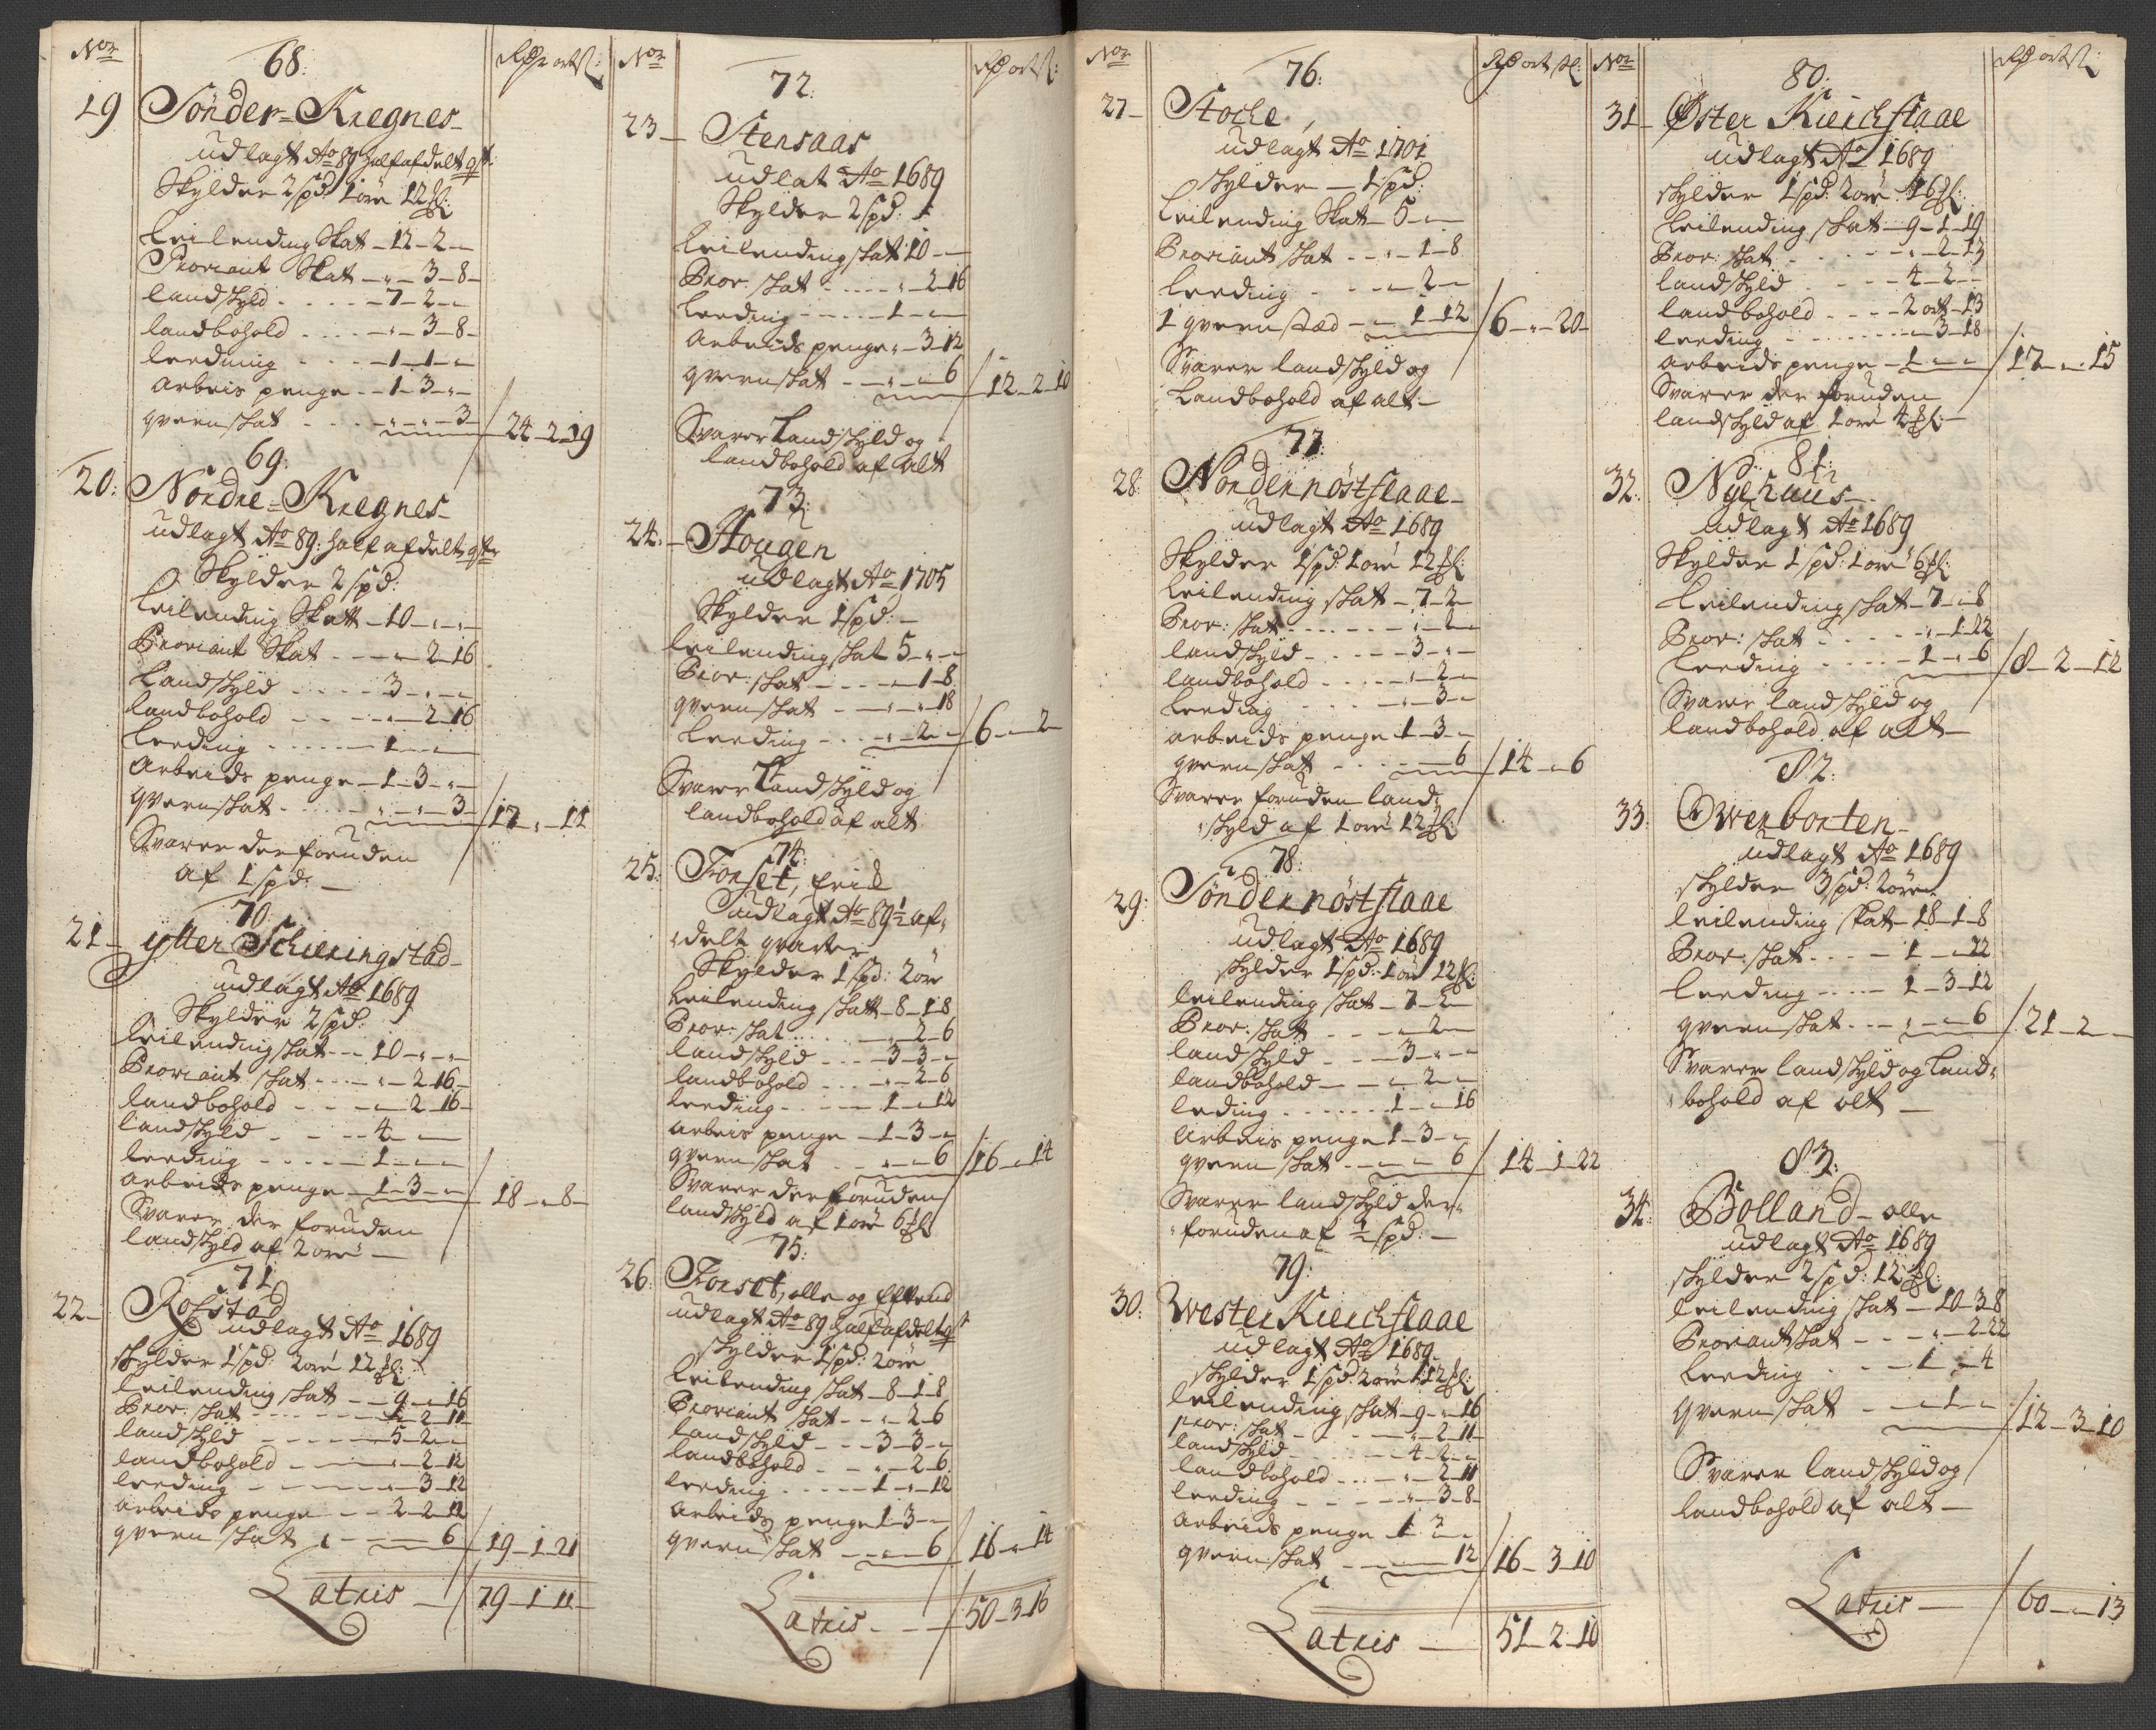 Nor 68: Rdr ort ſ:
19 Sönder=Kregnes
udlagt Ao 89 halfafdelt qt:
Skylder 2 spd: 1 öre 12 ſl:
Leilending Skat – 12 – 2 –
Proviant Skat – „ – 3 – 8 –
landskyld . . . . – 7 – 2 – „
landbohold . . . . – „ – 3 – 8 –
leeding . . . . – 1 – 1 – „
arbeis penge . . – 1 – 3 – „ –
qvernskat . . . . – „ – „ – 3 – / 24 – 2 – 19
69:
20: Nordre=Kregnes
udlagt Ao 89: half afdelt qt
Skylder 2 spd:
Leilending Skatt – 10 – „ – „ –
Proviant Skat . . . – „ – 2 – 16
Landskyld . . . . . 3 – „ – „
landbohold . . – „ – 2 – 16
Leeding . . . . . – 1 – „ –
Arbeids penge – 1 – 3 – „ –
qvernskat . . . . – „ – „ – 3 – / 17 – „ – 11
Svarer der foruden
af 1 spd: –
70:
21 – ytter Schieringstad
udlagt Ao 1689
Skylder 2 spd:
Leilending skat – – 10 – „ – „ –
Proviant skat . . . – „ – 2 – 16 –
landbohold . . – – „ – 2 – 16 –
landskyld . . – – 4 – „ –
leeding . . . . – 1 – „ –
arbeids penge – 1 – 3 – „ / 18 – „ – 8 –
Svarer der foruden
landskyld af 2 öre –
71
22 – Rofstad
udlagt Ao 1689
skylder 1 spd: 2 öre 12 ſl:
leilending skat – – 9 – „ – 16
Prov: skat . . . . – „ – 2 – 11
landskyld – – – – 5 – 2 – „
landbohold – – – „ – 2 – 12
leeding – – – – „ – 3 – 12
arbeids penge – – 2 – 2 – 12
qvern skat – – – 6 / 19 – 1 – 21
Latris – / 79 – 1 – 11 –
Nor 72: Rd ort ſ:
23 – Stensaas
udlat Ao 1689
Skylder 2 spd:
Leilending skat 10 – –
Prov: skat . . . . „ – 2 – 16
Leeding – – – – 1 – „ –
Arbeids penge „ – 3 – 12
qvernskat – – „ – „ – 6 / 12 – 2 – 10
Svarer Landskyld og
landbohold af alt
73:
24: – Hougen
udlagt Ao 1705
Skylder 1 spd: –
leilending skat 5 – „ –
Prov: skat – . . – „ – 1 – 8
qvernskat – – „ – „ – 18
Leeding – . . . – „ – 2 – „ / 6 – „ – 2 –
Svarer Landskyld og
landbohold af alt
74:
25: Forset, Erik
udlagt Ao 89 ½ af„
„delt qvarter
Skylder 1 spd: 2 öre
Leilending skatt – 8 – 1 – 8
Prov: skat . . . . – „ – 2 – 6
landskyld . . . – 3 – 3 – „
landbohold . . . – „ – 2 – 6
leeding . . . – – 1 – „ – 12
arbeis penge – 1 – 3 – „
qvernskat . . – „ – „ – 6 / 16 – „ – 14
Svarer der foruden
landskyld af 1 öre 6 ſl
75:
26: Forset, olle og Effvend
udlagt Ao 89 halfafdelt qt
skylder 1 spd: 2 öre
Leilending skat – 8 – 1 – 8
Proviant skat – – „ – 2 – 6
landskyld – – – 3 – 3 – „
landbohold . – „ – 2 – 6
leeding . . . . – 1 – „ – 12
arbeids penge 1 – 3 – „
qvern skat – „ – „ – 6 / 16 – „ – 14
Latris – – / 50 – 3 – 16
Nor 76: Rd ort ſl: 
27 – Stocke,
udlagt Ao 1701
skylder – 1 spd:
Leilending Skat – 5 – „ –
Proviant skat . – „ – 1 – 8
Leeding . . . – „ – 2 – „
1 qvernstæd – „ – 1 – 12 / 6 – „ – 20 –
Svarer landskyld og
Landbohold af alt –
77:
28: Nordernöstflaae
udlagt Ao 1689
Skylder 1 spd: 1 öre 12 ſl:
Leilending skat – 7 – 2 –
Prov: skat . . . . – „ – 2 – „
landskyld – . . . – 3 – „ –
landbohold . . . . „ – 2 – „
Leeding . . . . „ – 3 – „
arbeids penge 1 – 3 – „
qvernskat . . . – – 6 / 14 – „ – 6
Svarer foruden land„
„skyld af 1 öre 12 ſl:
78:
29: Söndernöstflaae
udlagt Ao 1689
skylder 1 spd: 1 öre 12 ſl:
leilending skat – 7 – 2 –
Prov: skat . . – „ – 2 – „
landskyld . . – 3 – „ –
landbohold – – „ – 2 – „
leding . . . . . . 1 – „ – 16
Arbeis penge 1 – 3 – „
qvern skat – – „ – „ – 6 / 14 – 1 – 22
Svarer landskyld der„
„foruden af ½ spd: –
79:
30: Wester Kierchflaae
udlagt Ao 1689.
skylder 1 spd: 2 öre 12 ſl:
leilending skat – 9 – „ – 16
prov: skat . . . – „ – 2 – 11
landskyld . . . . – 4 – 2 – „
landbohold . . . – „ – 2 – 11
leeding . . . . – „ – 3 – 8 –
arbeids penge 1 – 2 – „
qvernskat – – – 12 / 16 – 3 – 10
Latris – 51 – 2 – 10
Nor 80: Rd ort ſ:
31 – Öster Kierchflaae
udlagt Ao 1689
skylder 1 spd: 2 öre 16 ſl:
Leilending skat – 9 – 1 – 19
Prov: skat . . . . – „ – 2 – 13
landskyld . . . – 4 – 2 –
landbohold . . . – 2 ort – 13
leeding . . . . . . „ – 3 – 18
arbeids penge – 1 – „ – „ / 17 – „ – 15
Svarer der foruden
landskyld af 1 öre 4 ſl: –
81:
32: Nyehuus
udlagt Ao 1689
Skylder 1 spd: 1 öre 6 ſl:
Leilending skat – 7 – „ – 8
Prov: skat . . . . – „ – 1 – 22
Leeding . . . . – 1 – „ – 6 / 8 – 2 – 12
Svarer landskyld og
landbohold af alt –
82:
33: Owerborten
udlagt Ao 1689
skylder 3 spd: 2 öre
leilending skat – 18 – 1 – 8
Prov: skat . . . – 1 – „ – 22
Leeding . . . . – 1 – 3 – 12
qvernskat . . . – „ – „ – 6 / 21 – 2 –
Svarer landskyld og land„
„bohold af alt –
83:
34: Bolland – olle
udlagt Ao 1689
skylder 2 spd: 12 ſl:
leilending skat – 10 – 3 – 8
Proviant skat – – – „ – 2 – 22
Leeding . . . – 1 – „ – 4
qvern skat – „ – 1 – „ / 12 – 3 – 10
Svarer landskyld og
landbohold af alt –
Latris – / 60 – „ – 13